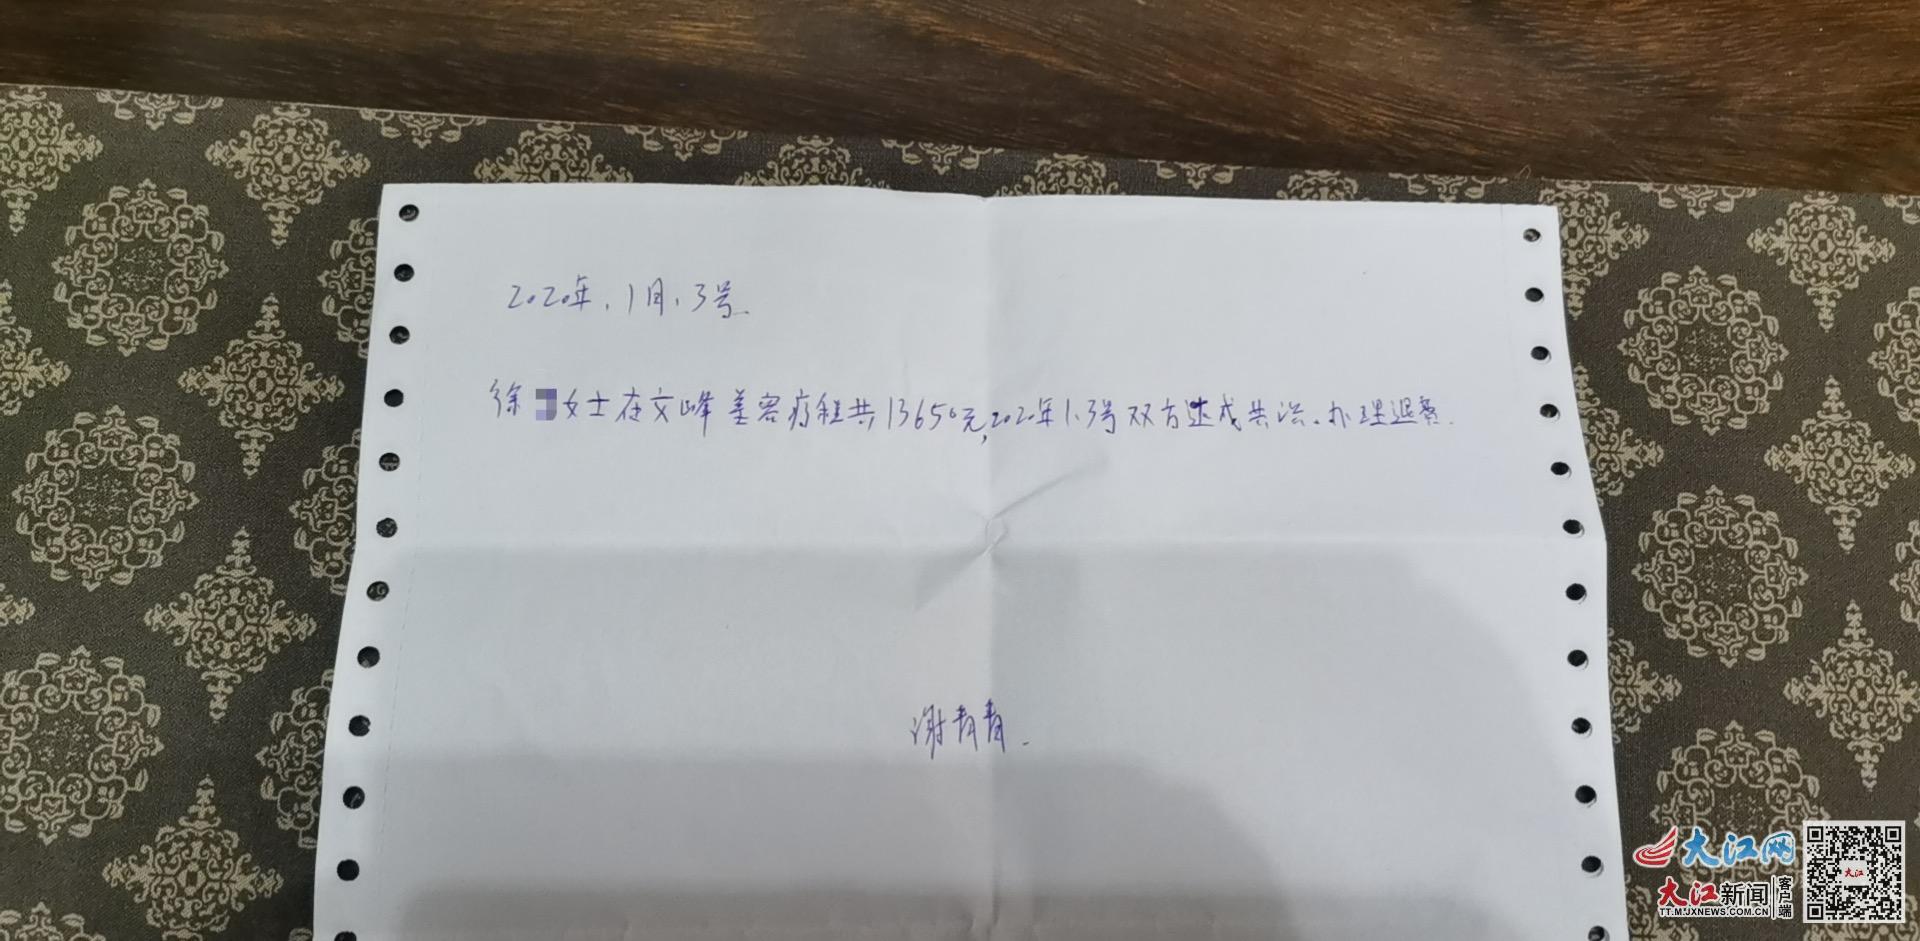 2020年.1月.3号.
徐 女士在文峰美容疗程共13650元,2020年1.3号双方达成共识.办理退费.
谢青青.
大江网
大江新闻客户端
TT.M.JXNEWS.COM.CN
大江